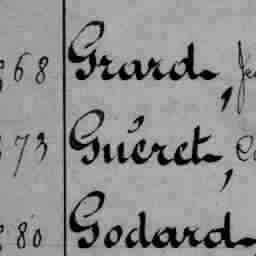 68 Grard,
73 Guéret,
80 Godard,